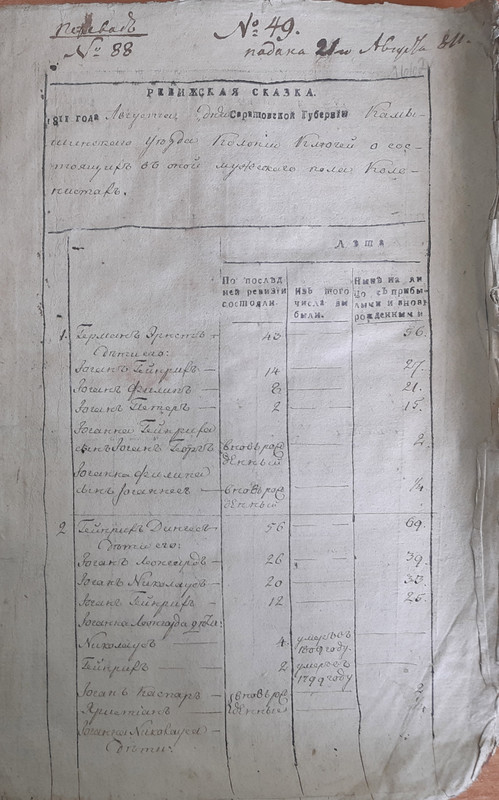 перевадъ
№ 88
№ 49.
падана 21го Августа 811.
РЕВИЖСКАЯ СКАЗКА.
1811 года Августа дня Саратовской Губернiи Камы-
шинскаго уѣзда Колонiи Ключей о сос-
тоящихъ въ оной мужескаго пола Коло-
нистахъ.
Лѣта
По послѣд ней ревизiи состояли.
Изъ того числа вы были.
Нынѣ на ли цо съ прибы лыми и вновь рожденными
1. Германъ Эрнстъ 43 56.
дѣти его:
Iоганъ Гейнрихъ 14 27.
Iоганъ Филипъ 8 21.
Iоганъ Петеръ 2 15.
Iоганна Гейнриха
сынъ Iоганъ Георгъ вновь рож денный 2
Iоганна Филипа
сынъ Iоганнесъ вновь рож денный 1/4
2 Гейнрихъ 56 69.
дѣти его:
Iоганъ Леонгардъ 26 39.
Iоганъ Николаусъ 20 33.
Iоганъ Гейнрихъ 12 25.
Iоганна Леонгарда дѣти:
Николаусъ 4. умерь въ 1809 году.
Гейнрихъ 2 умерь въ 1799 году
Iоганъ Каспаръ вновь рож 2
Христiанъ денные
Iоганна Николауса
дѣти: